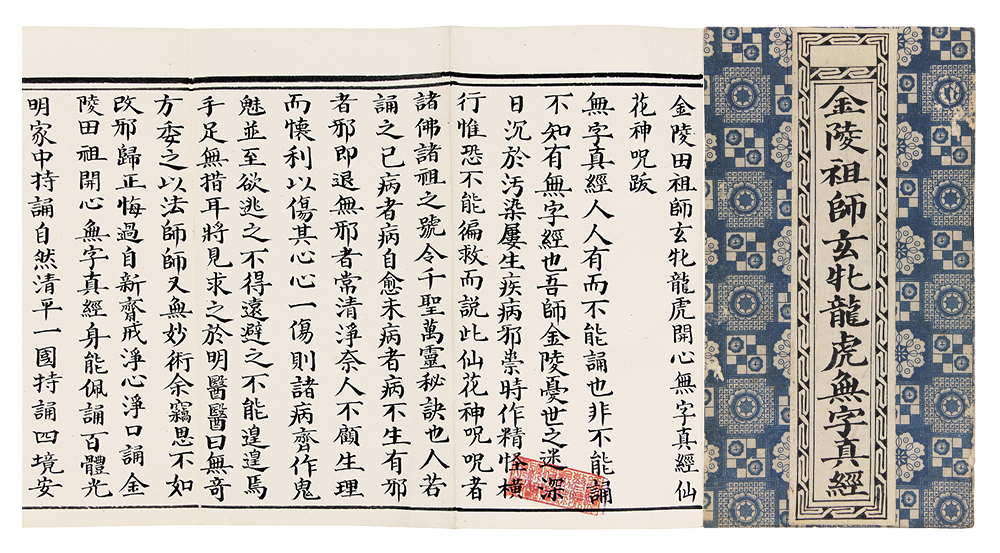 金陵祖師玄牝龍虎無字真經
金陵田祖師玄牝龍虎開心無字真經仙
花神呪跋
無字真經人人有而不能誦也非不能誦
不知有無字經也吾師金陵憂世之迷深
日沉於汚染屢生疾病邪祟時作精怪橫
行惟恐不能徧救而説此仙花神呪呪者
諸佛諸祖之號令千聖萬靈秘訣也人若
誦之已病者病自愈未病者病不生有邪
者邪即退無邪者常清淨奈人不顧生理
而懷利以傷其心心一傷則諸病齊作鬼
魅並至欲逃之不得遠避之不能遑遑焉
手足無措耳將見求之於明醫醫曰無奇
方委之以法師師又無妙術余竊思不如
改邪歸正悔過自新齋戒淨心淨口誦金
陵田祖開心無字真經身能佩誦百體光
明家中持誦自然清平一國持誦四境安